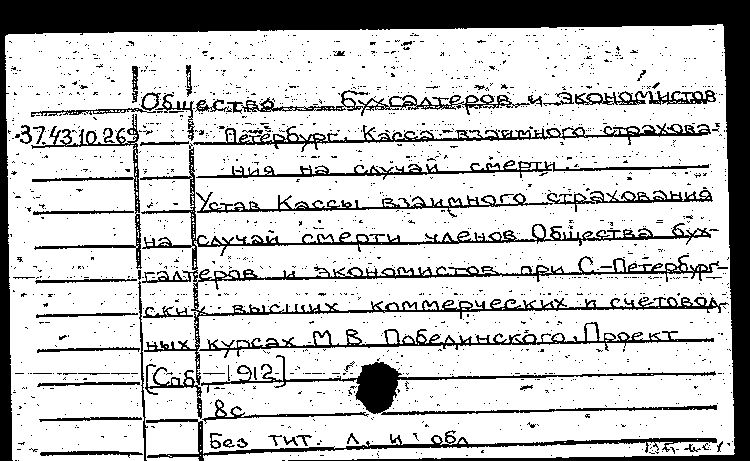 Общество бухгалтеров и экономистов
37.43.10.269 Петербург. Касса взаимного страхова-
ния на случай смерти.
Устав Кассы взаимного страхования
на случай смерти членов Общества бух-
галтеров и экономистов при С.-Петербург-
ских высших коммерческих и счетовод-
ных курсах М.В. Побединского. Проект
[Спб, 1912]
8с
Без тит. л. и обл